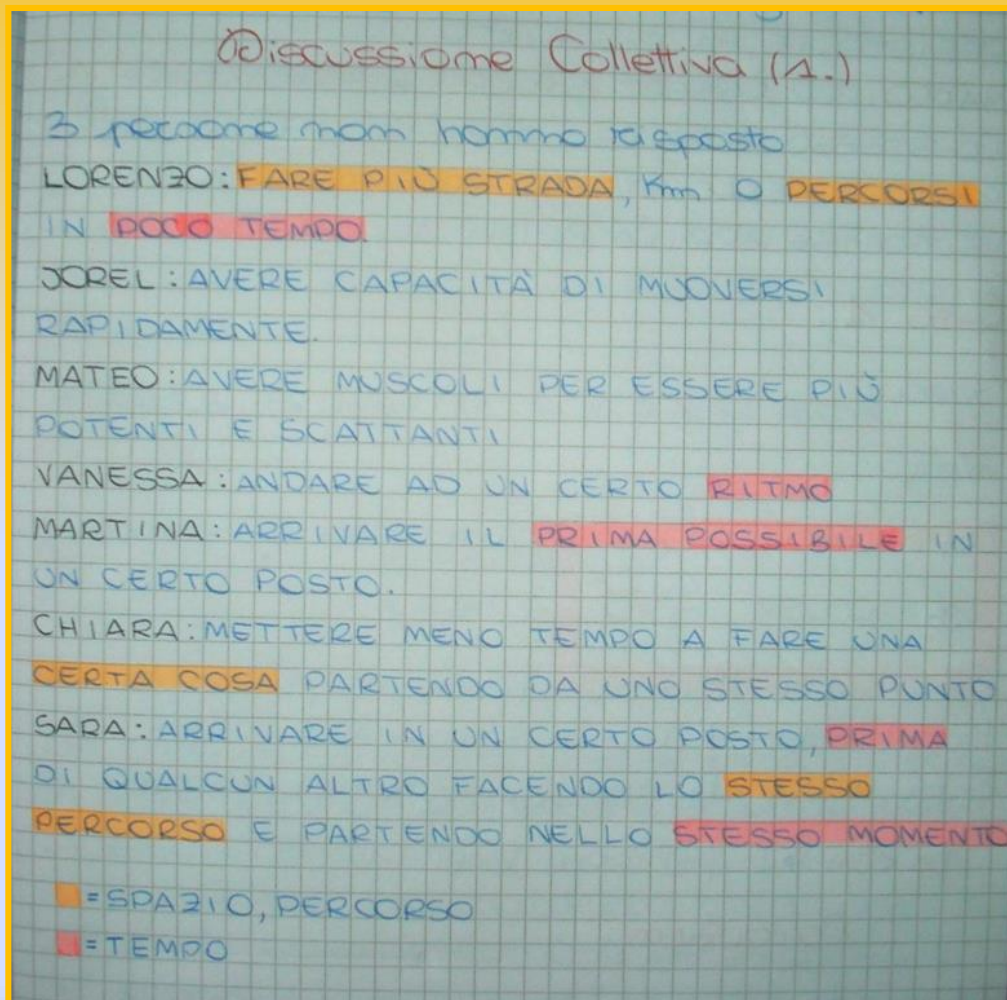 Discussione Collettiva (1.)
3 persone non hanno risposto
LORENZO: FARE PIÙ STRADA, Km O PERCORSI
IN POCO TEMPO.
JOREL: AVERE CAPACITÀ DI MUOVERSI
RAPIDAMENTE.
MATEO: AVERE MUSCOLI PER ESSERE PIÙ
POTENTI E SCATTANTI
VANESSA: ANDARE AD UN CERTO RITMO
MARTINA: ARRIVARE IL PRIMA POSSIBILE IN
UN CERTO POSTO.
CHIARA: METTERE MENO TEMPO A FARE UNA
CERTA COSA PARTENDO DA UNO STESSO PUNTO
SARA: ARRIVARE IN UN CERTO POSTO, PRIMA
DI QUALCUN ALTRO FACENDO LO STESSO
PERCORSO E PARTENDO NELLO STESSO MOMENTO
= SPAZIO, PERCORSO
= TEMPO